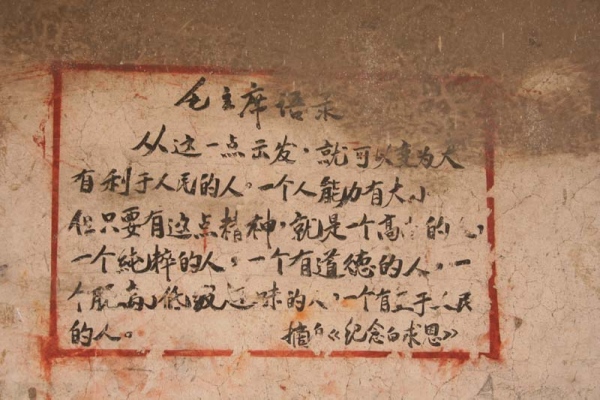 毛主席语录
从这一点出发,就可以变为大
有利于人民的人。一个人能力有大小
但只要有这点精神,就是一个高的人,
一个純粹的人。一个有道德的人,一
个脱离低级趣味的人,一个有益于人民
的人。 摘自《纪念白求恩》